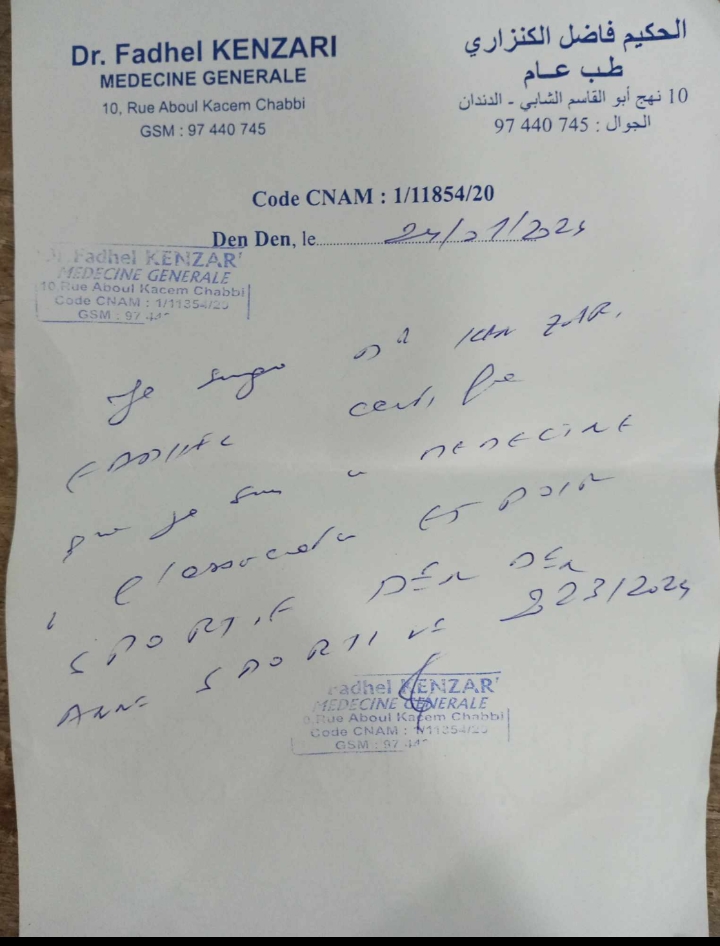 Dr. Fadhel KENZARI
MEDECINE GENERALE
10, Rue Aboul Kacem Chabbi
GSM : 97 440 745
الحكيم فاضل الكنزاري
طب عام
10 نهج أبو القاسم الشابي - الدندان
الجوال : 745 440 97
Code CNAM : 1/11854/20
Den Den, le 24/01/2024
Fadhel KENZAR
MEDECINE GENERALE
10.Rue Aboul Kacem Chabbi
Code CNAM : 1/11854/20
GSM : 97 44
Je
certifie
que je suis MEDECINE
l'association ESPOIR
SPORTIF DEN DEN
ANNE SPORTIVE 2023/2024
Fadhel KENZAR
MEDECINE GENERALE
Rue Aboul Kacem Chabbi
Code CNAM : 1/11854/20
GSM : 97 44